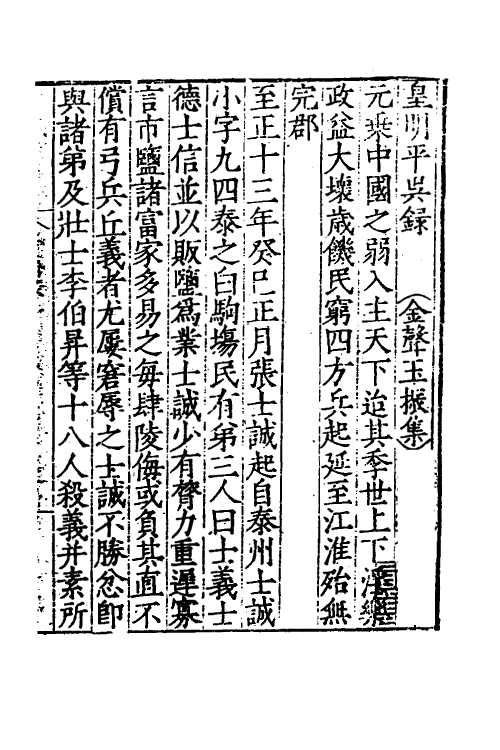 皇明平吳錄 (金聲玉振集)
元乗中國之弱入主天下迨其季世上下
政益大壞歳饑民窮四方兵起延至江淮殆無
完郡
至正十三年癸巳正月張士誠起自泰州士誠
小字九四泰之白駒塲民有弟三人曰士義士
德士信並以販鹽爲業士誠少有膂力重遲寡
言市鹽諸富家多易之每肆陵侮或負其直不
償有弓兵丘義者尤屢窘辱之士誠不勝忿即
與諸弟及壯士李伯昇等十八人殺義并素所